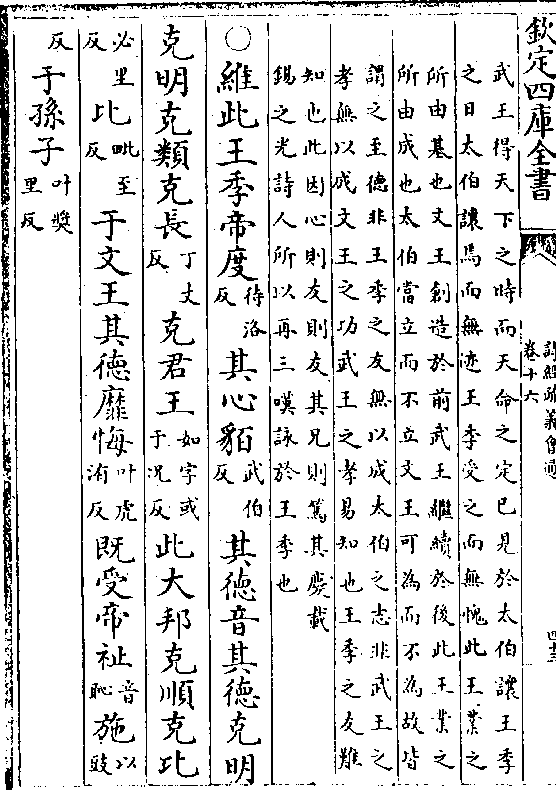 欽定四庫全書
詩經疏義會通
卷十六
四十三
武王得天下之時而天命之定已見於太伯讓王季
之日太伯讓焉而無迹王季受之而無愧此王業之
所由基也文王創造於前武王繼續於後此王業之
所由成也太伯當立而不立文王可為而不為故皆
謂之至德非王季之友無以成太伯之志非武王之
孝無以成文王之功武王之孝易知也王季之友難
知也此因心則友則友其兄則篤其慶載
錫之光詩人所以再三嘆詠於王季也
○維此王季帝度待洛反其心貊武伯反其德音其德克明
克明克類克長丁丈反克君王如字或于况反此大邦克順克比
必里反比毗至反于文王其德靡悔叶虎洧反既受帝祉音恥施以豉
反于孫子叶奬里反